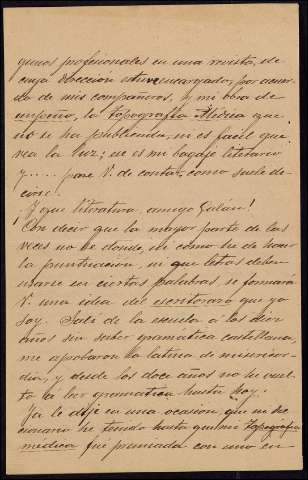 quios profesionales en una revista, de
cuya direccion estuve encargado, por acuer
do de mis compañeros, y mi obra de
, la Topografía Médica que
no se ha publicado, ni es facil que
vea la luz; ese es mi bagaje literario
y..... pare V. de contar, como suele de
cirse.
¡Y que literatura, amigo Galán!
Con decir que la mayor parte de las
veces no se donde, ni como he de hacer
la puntuación, ni que letras deben
usarse en ciertas palabras, se formará
V. una idea del escritorazo que yo
soy. Salí de la escuela á los diez
años sin saber gramática castellana,
me aprobaron la latina de misericor
dia, y desde los doce años no he vuel
to á leer gramatica hasta hoy.
Ya le dije en una ocasion, que ni dic
cionario he tenido hasta que mi Topografía
médica fué premiada con uno en